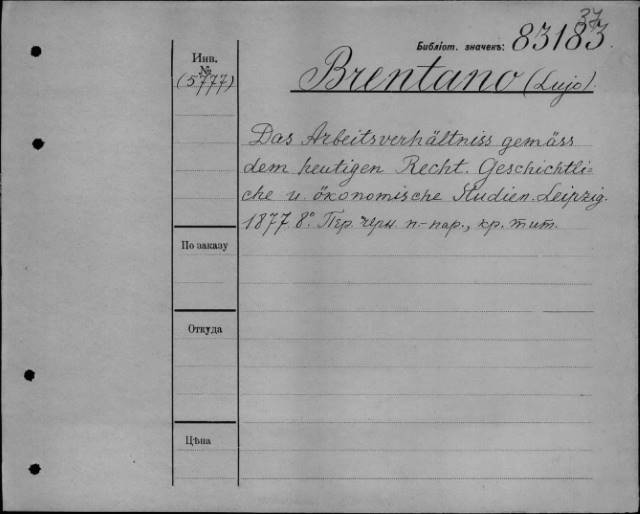 37
Библіот. значекъ: 83183
Инв.
№
(5777)
Brentano (Lujo).
Das Arbeitsverhältniss gemäss
dem heutigen Recht. Geschichtli=
che u. ökonomische Studien. Leipzig.
1877. 8°. Пер. черн. п.-пар., кр. тит.
По заказу
Откуда
Цѣна